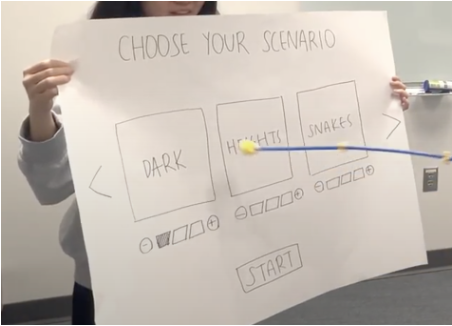 CHOOSE YOUR SCENARIO
DARK
HEIGHTS
SNAKES
START